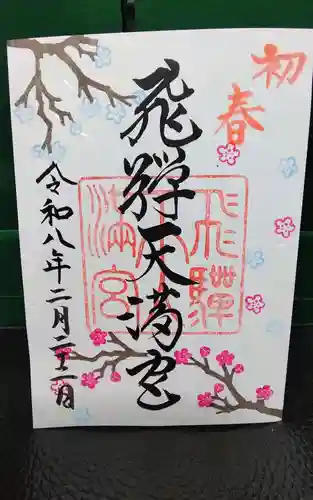 初春
飛騨天満宮
飛騨天満宮
令和八年二月二十二日